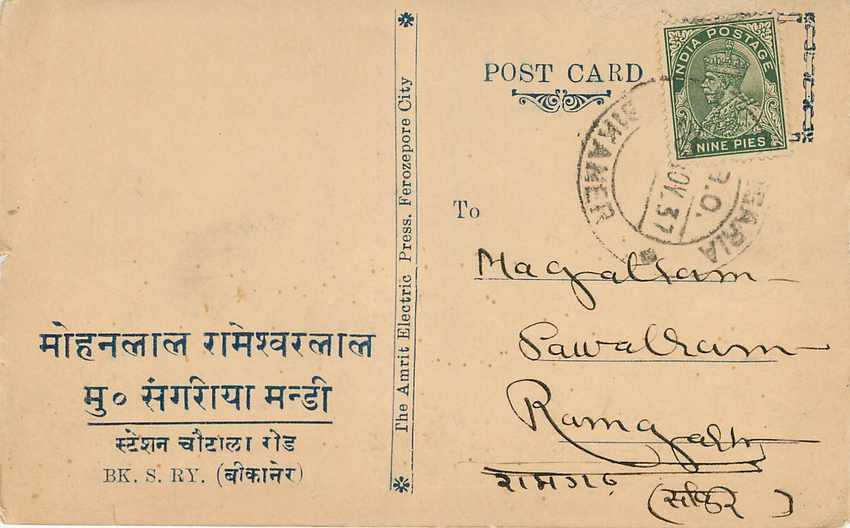 POST CARD
INDIA POSTAGE
NINE PIES
BIKANER
GARIA
NOV. 37
To
Magatram
Sawatram
Ramgarh
रामगढ़
(सीकर)
The Amrit Electric Press. Ferozepore City
मोहनलाल रामेश्वरलाल
मु० संगरीया मन्डी
स्टेशन चौटाला रोड
BK. S. RY. (बीकानेर)